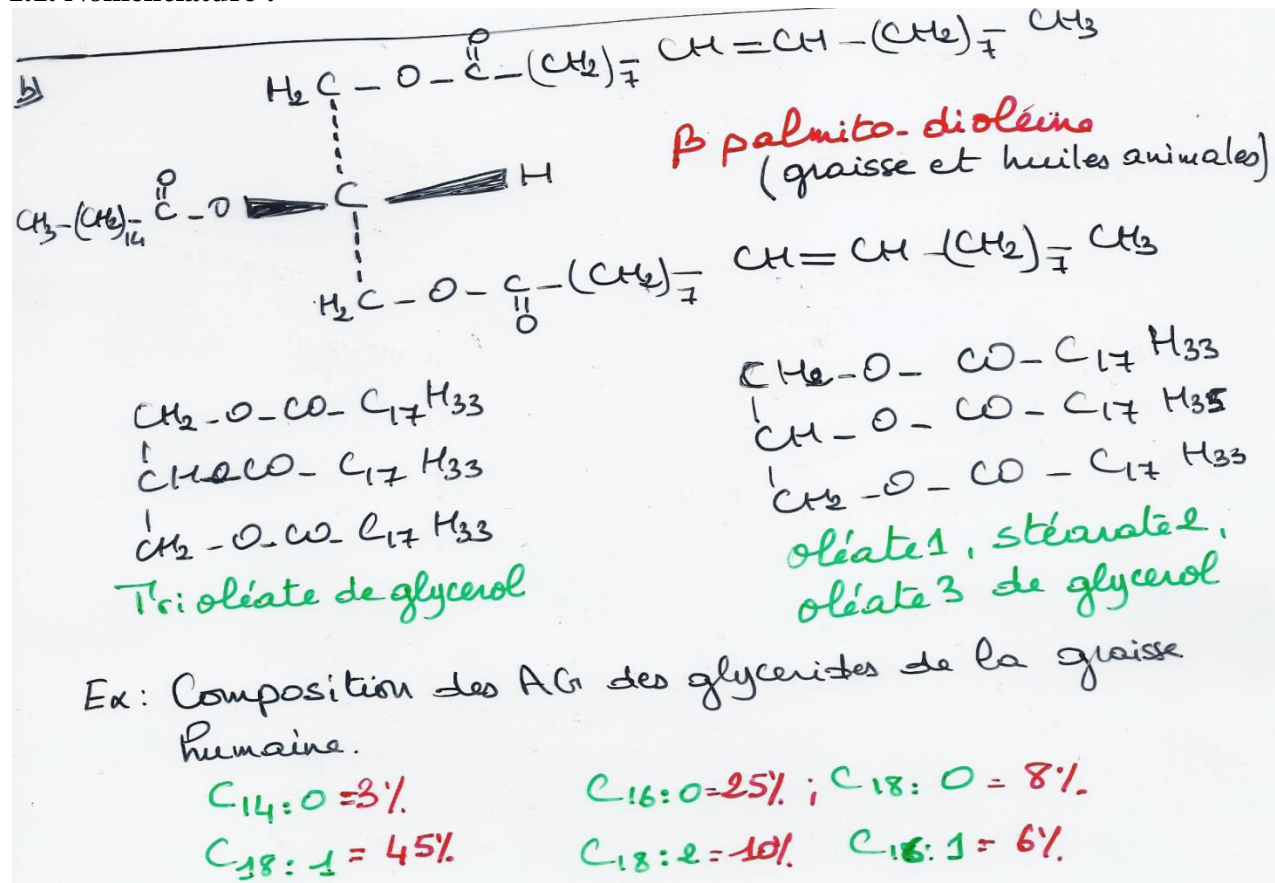 b)
H₂C – O – C(=O) – (CH₂)₇ – CH = CH – (CH₂)₇ – CH₃
β palmito-dioléine
(graisse et huiles animales)
CH₃-(CH₂)₁₄ – C(=O) – O – C – H
H₂C – O – C(=O) – (CH₂)₇ – CH = CH – (CH₂)₇ – CH₃
CH₂ - O - CO - C₁₇H₃₃
CHOCO - C₁₇H₃₃
CH₂ - O - CO - C₁₇H₃₃
Trioléate de glycerol
CH₂ - O - CO - C₁₇H₃₃
CH - O - CO - C₁₇H₃₅
CH₂ - O - CO - C₁₇H₃₃
oléate1, stéarate2,
oléate3 de glycerol
Ex: Composition des AG des glycerides de la graisse
humaine.
C14:0 =3% C16:0=25% ; C18:0 = 8%.
C18:1 = 45% C18:2 = 10% C16:1 = 6%